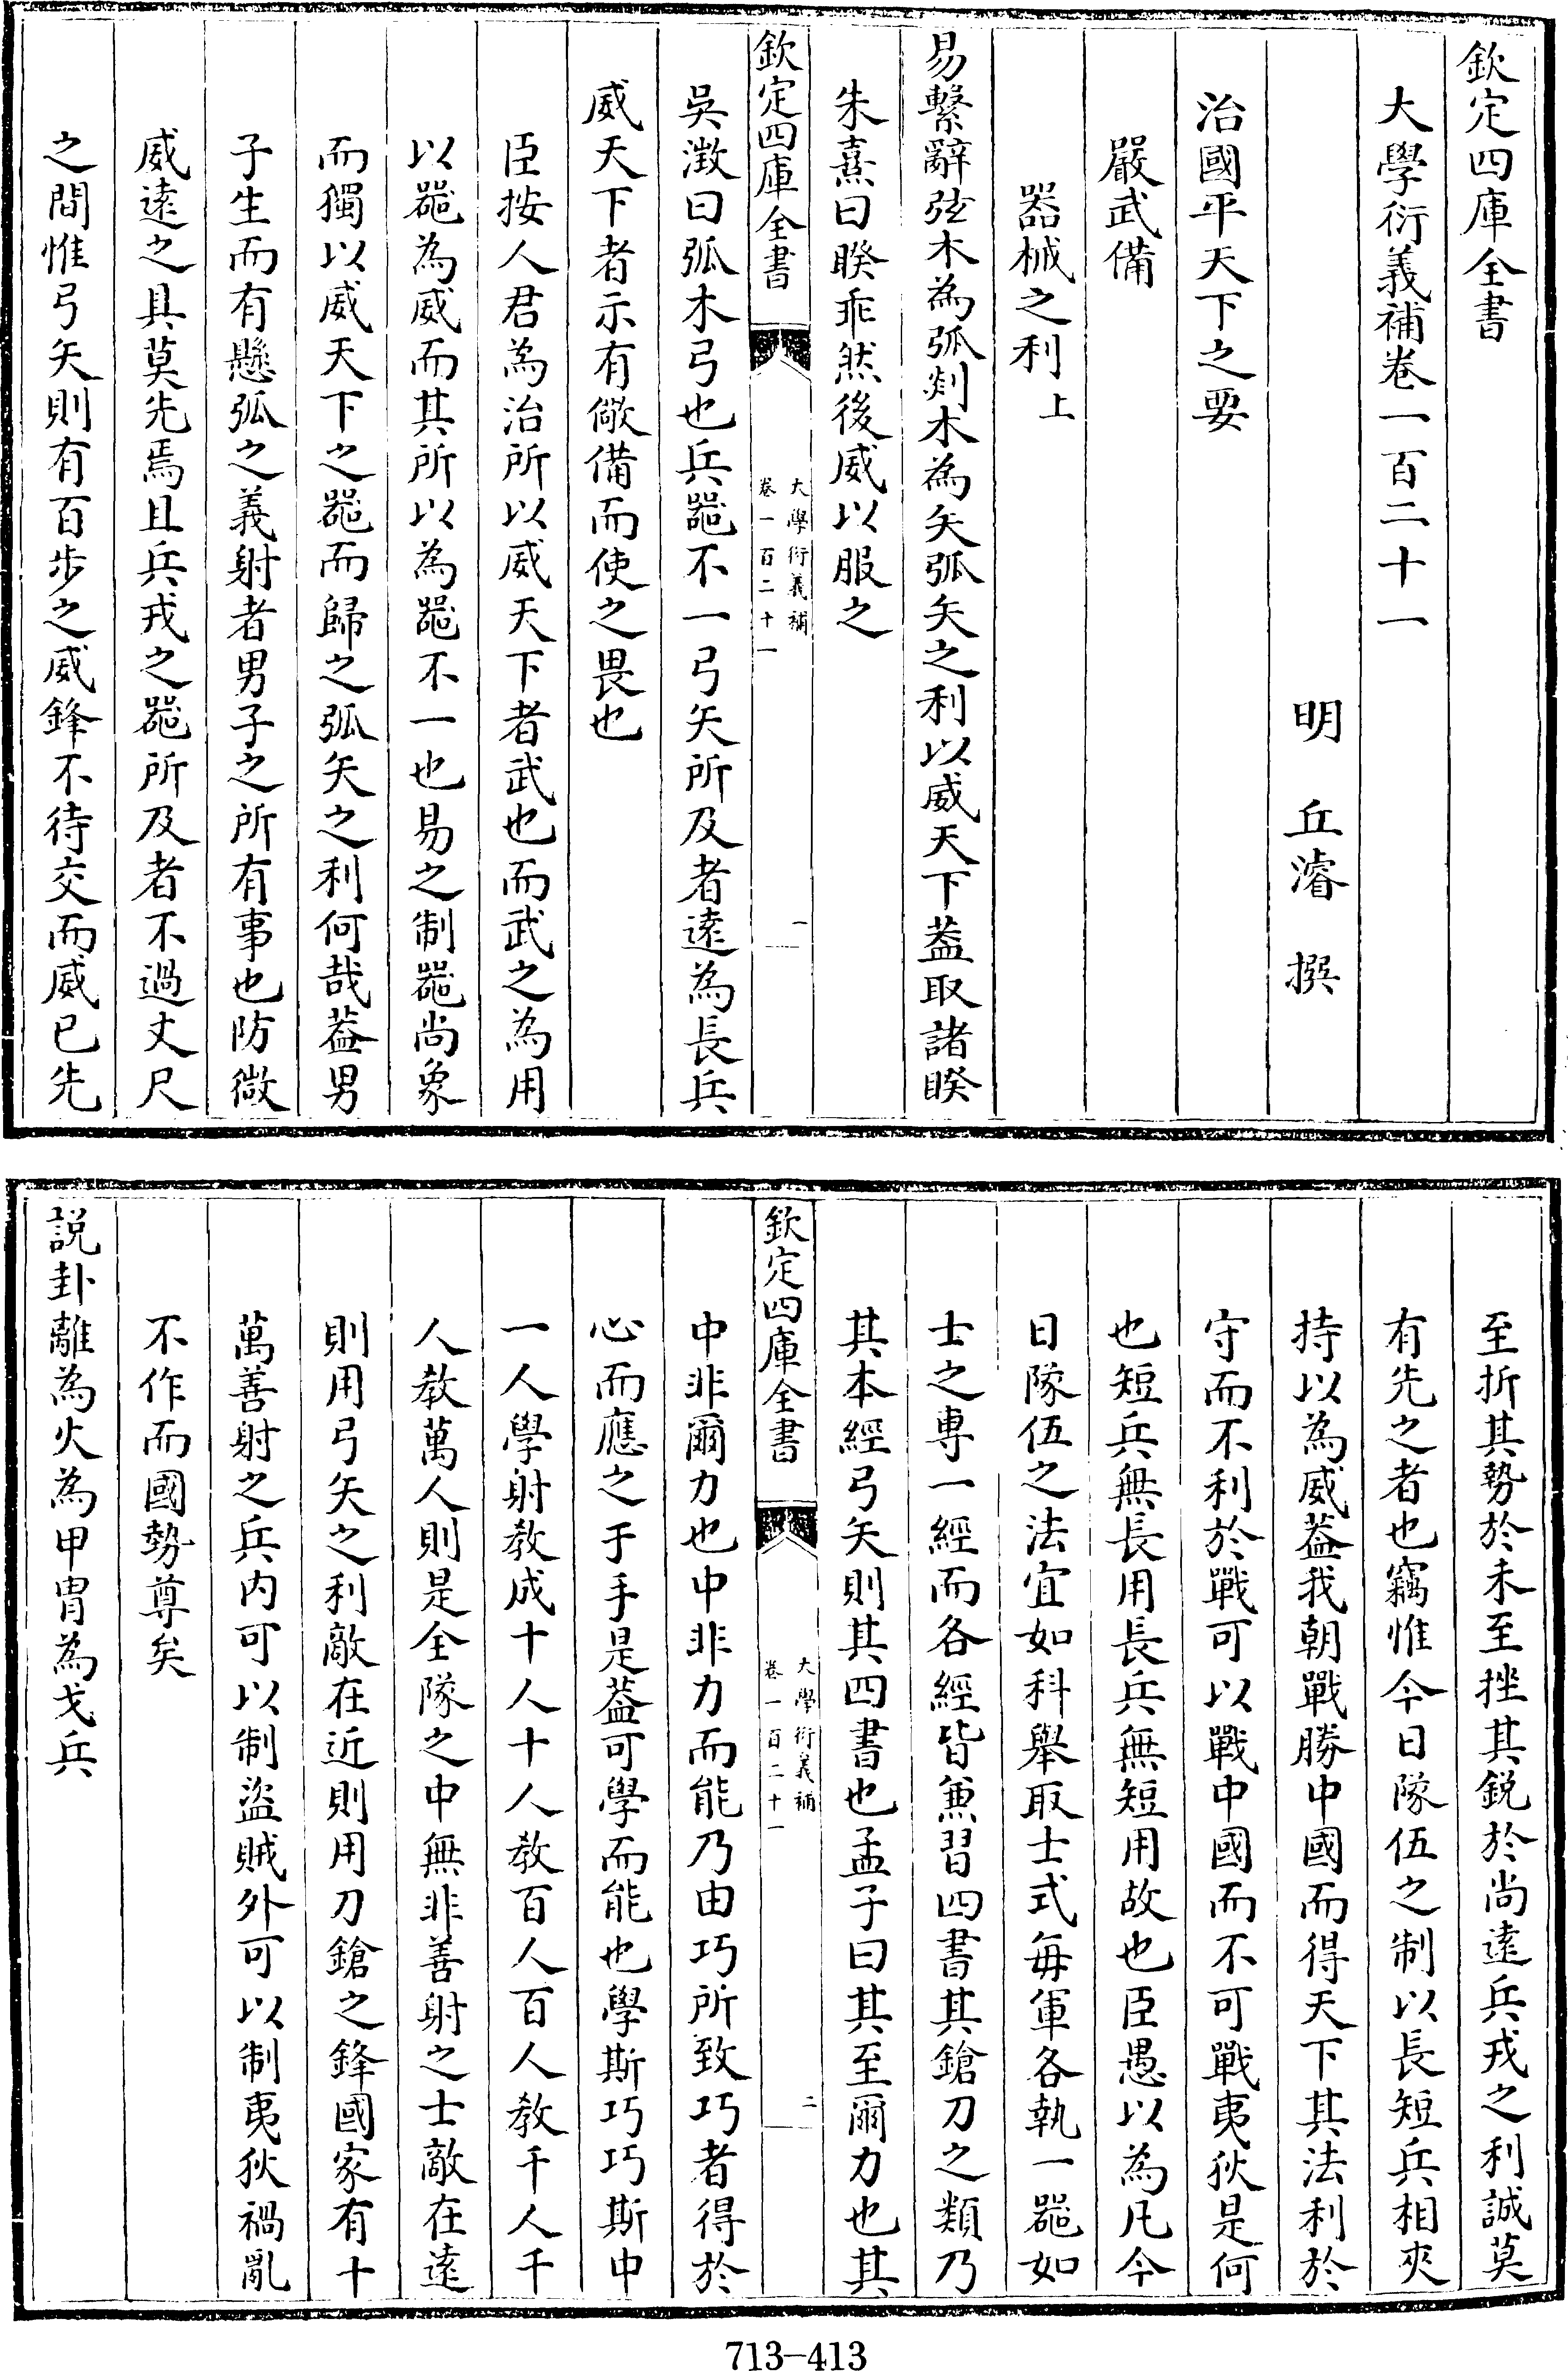 欽定四庫全書
大學衍義補卷一百二十一
明 丘濬 撰
治國平天下之要
嚴武備
器械之利上
易繫辭弦木為弧剡木為矢弧矢之利以威天下葢取諸睽
朱熹曰睽乖然後威以服之
欽定四庫全書
大學衍義補
卷一百二十一
一
吳澂曰弧木弓也兵噐不一弓矢所及者遠為長兵
威天下者示有儆備而使之畏也
臣按人君為治所以威天下者武也而武之為用
以噐為威而其所以為噐不一也易之制噐尚象
而獨以威天下之噐而歸之弧矢之利何哉葢男
子生而有懸弧之義射者男子之所有事也防微
威遠之具莫先焉且兵戎之噐所及者不過丈尺
之間惟弓矢則有百步之威鋒不待交而威已先
至折其勢於未至挫其銳於尚遠兵戎之利誠莫
有先之者也竊惟今日隊伍之制以長短兵相夾
持以為威葢我朝戰勝中國而得天下其法利於
守而不利於戰可以戰中國而不可戰夷狄是何
也短兵無長用長兵無短用故也臣愚以為凡今
日隊伍之法宜如科舉取士式每軍各執一噐如
士之専一經而各經皆兼習四書其鎗刀之類乃
其本經弓矢則其四書也孟子曰其至爾力也其
欽定四庫全書
大學衍義補
卷一百二十一
二
中非爾力也中非力而能乃由巧所致巧者得於
心而應之于手是葢可學而能也學斯巧巧斯中
一人學射教成十人十人教百人百人教千人千
人教萬人則是全隊之中無非善射之士敵在遠
則用弓矢之利敵在近則用刀鎗之鋒國家有十
萬善射之兵内可以制盜賊外可以制夷狄禍亂
不作而國勢尊矣
説卦離為火為甲胄為戈兵
713-413